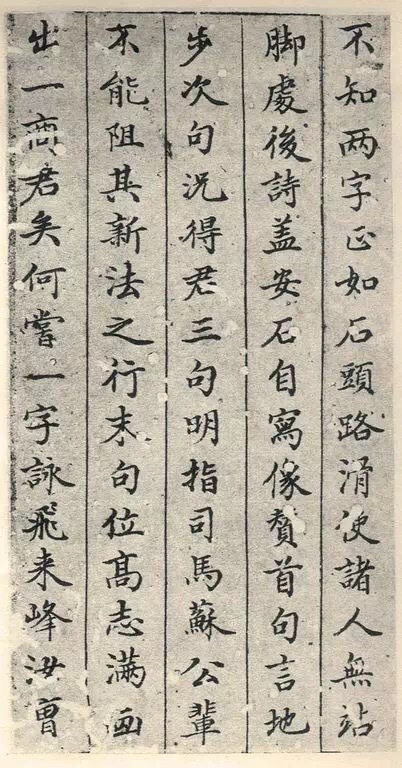 不知两字正如石頭路滑使諸人無站
脚處後詩盖安石自寫像賛首句言地
步次句況得君三句明指司馬蘇公輩
不能阻其新法之行末句位髙志满画
出一商君矣何嘗一字詠飛来峰汝曽